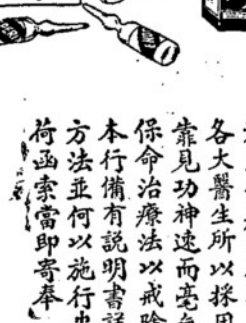 各大醫生所以採用
靠見功神速而毫無
保命治療法以戒除
本行備有説明書詳
方法並何以施行此
荷函索當即寄奉